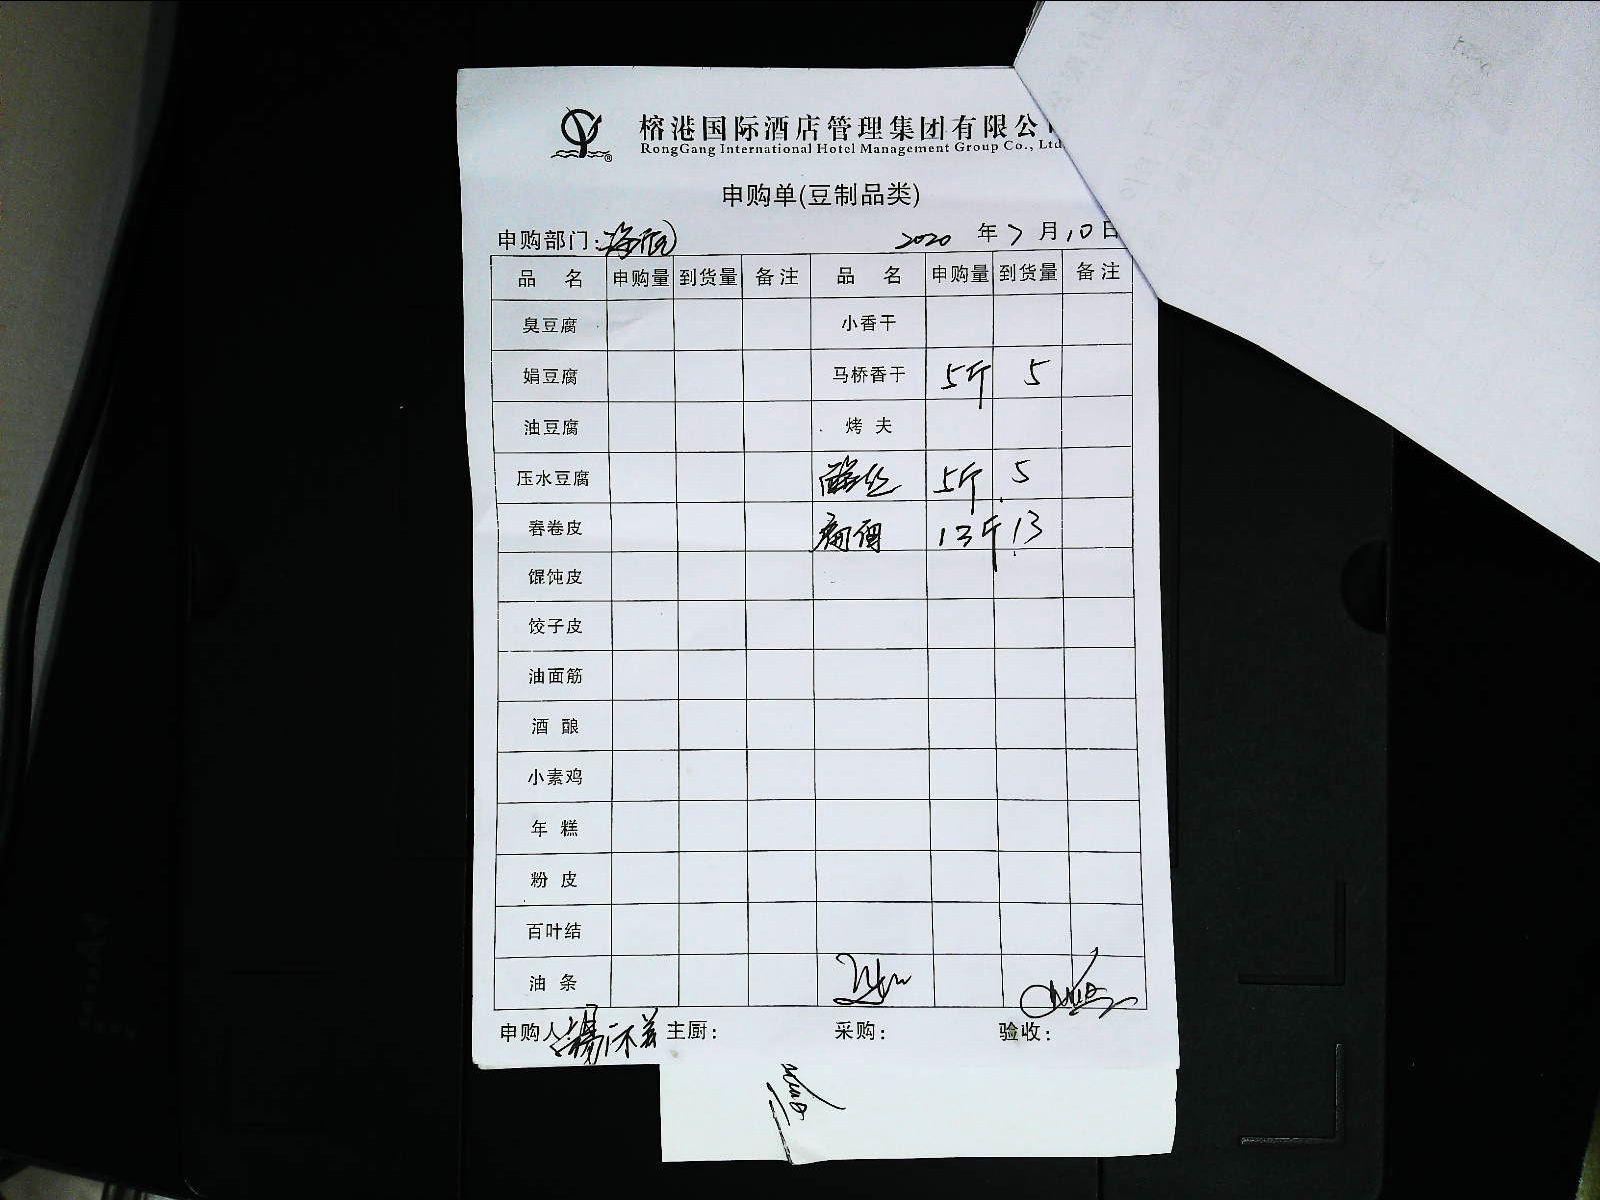 榕港国际酒店管理集团有限公
RongGang International Hotel Management Group Co., Ltd.
申购单(豆制品类)
申购部门: 2020 年 7 月 10 日
品 名 申购量 到货量 备注 品 名 申购量 到货量 备注
臭豆腐 小香干
娟豆腐 马桥香干 5斤 5
油豆腐 烤夫
压水豆腐 5斤 5
春卷皮 13斤 13
馄饨皮
饺子皮
油面筋
酒酿
小素鸡
年糕
粉皮
百叶结
油条
申购人 主厨: 采购: 验收: